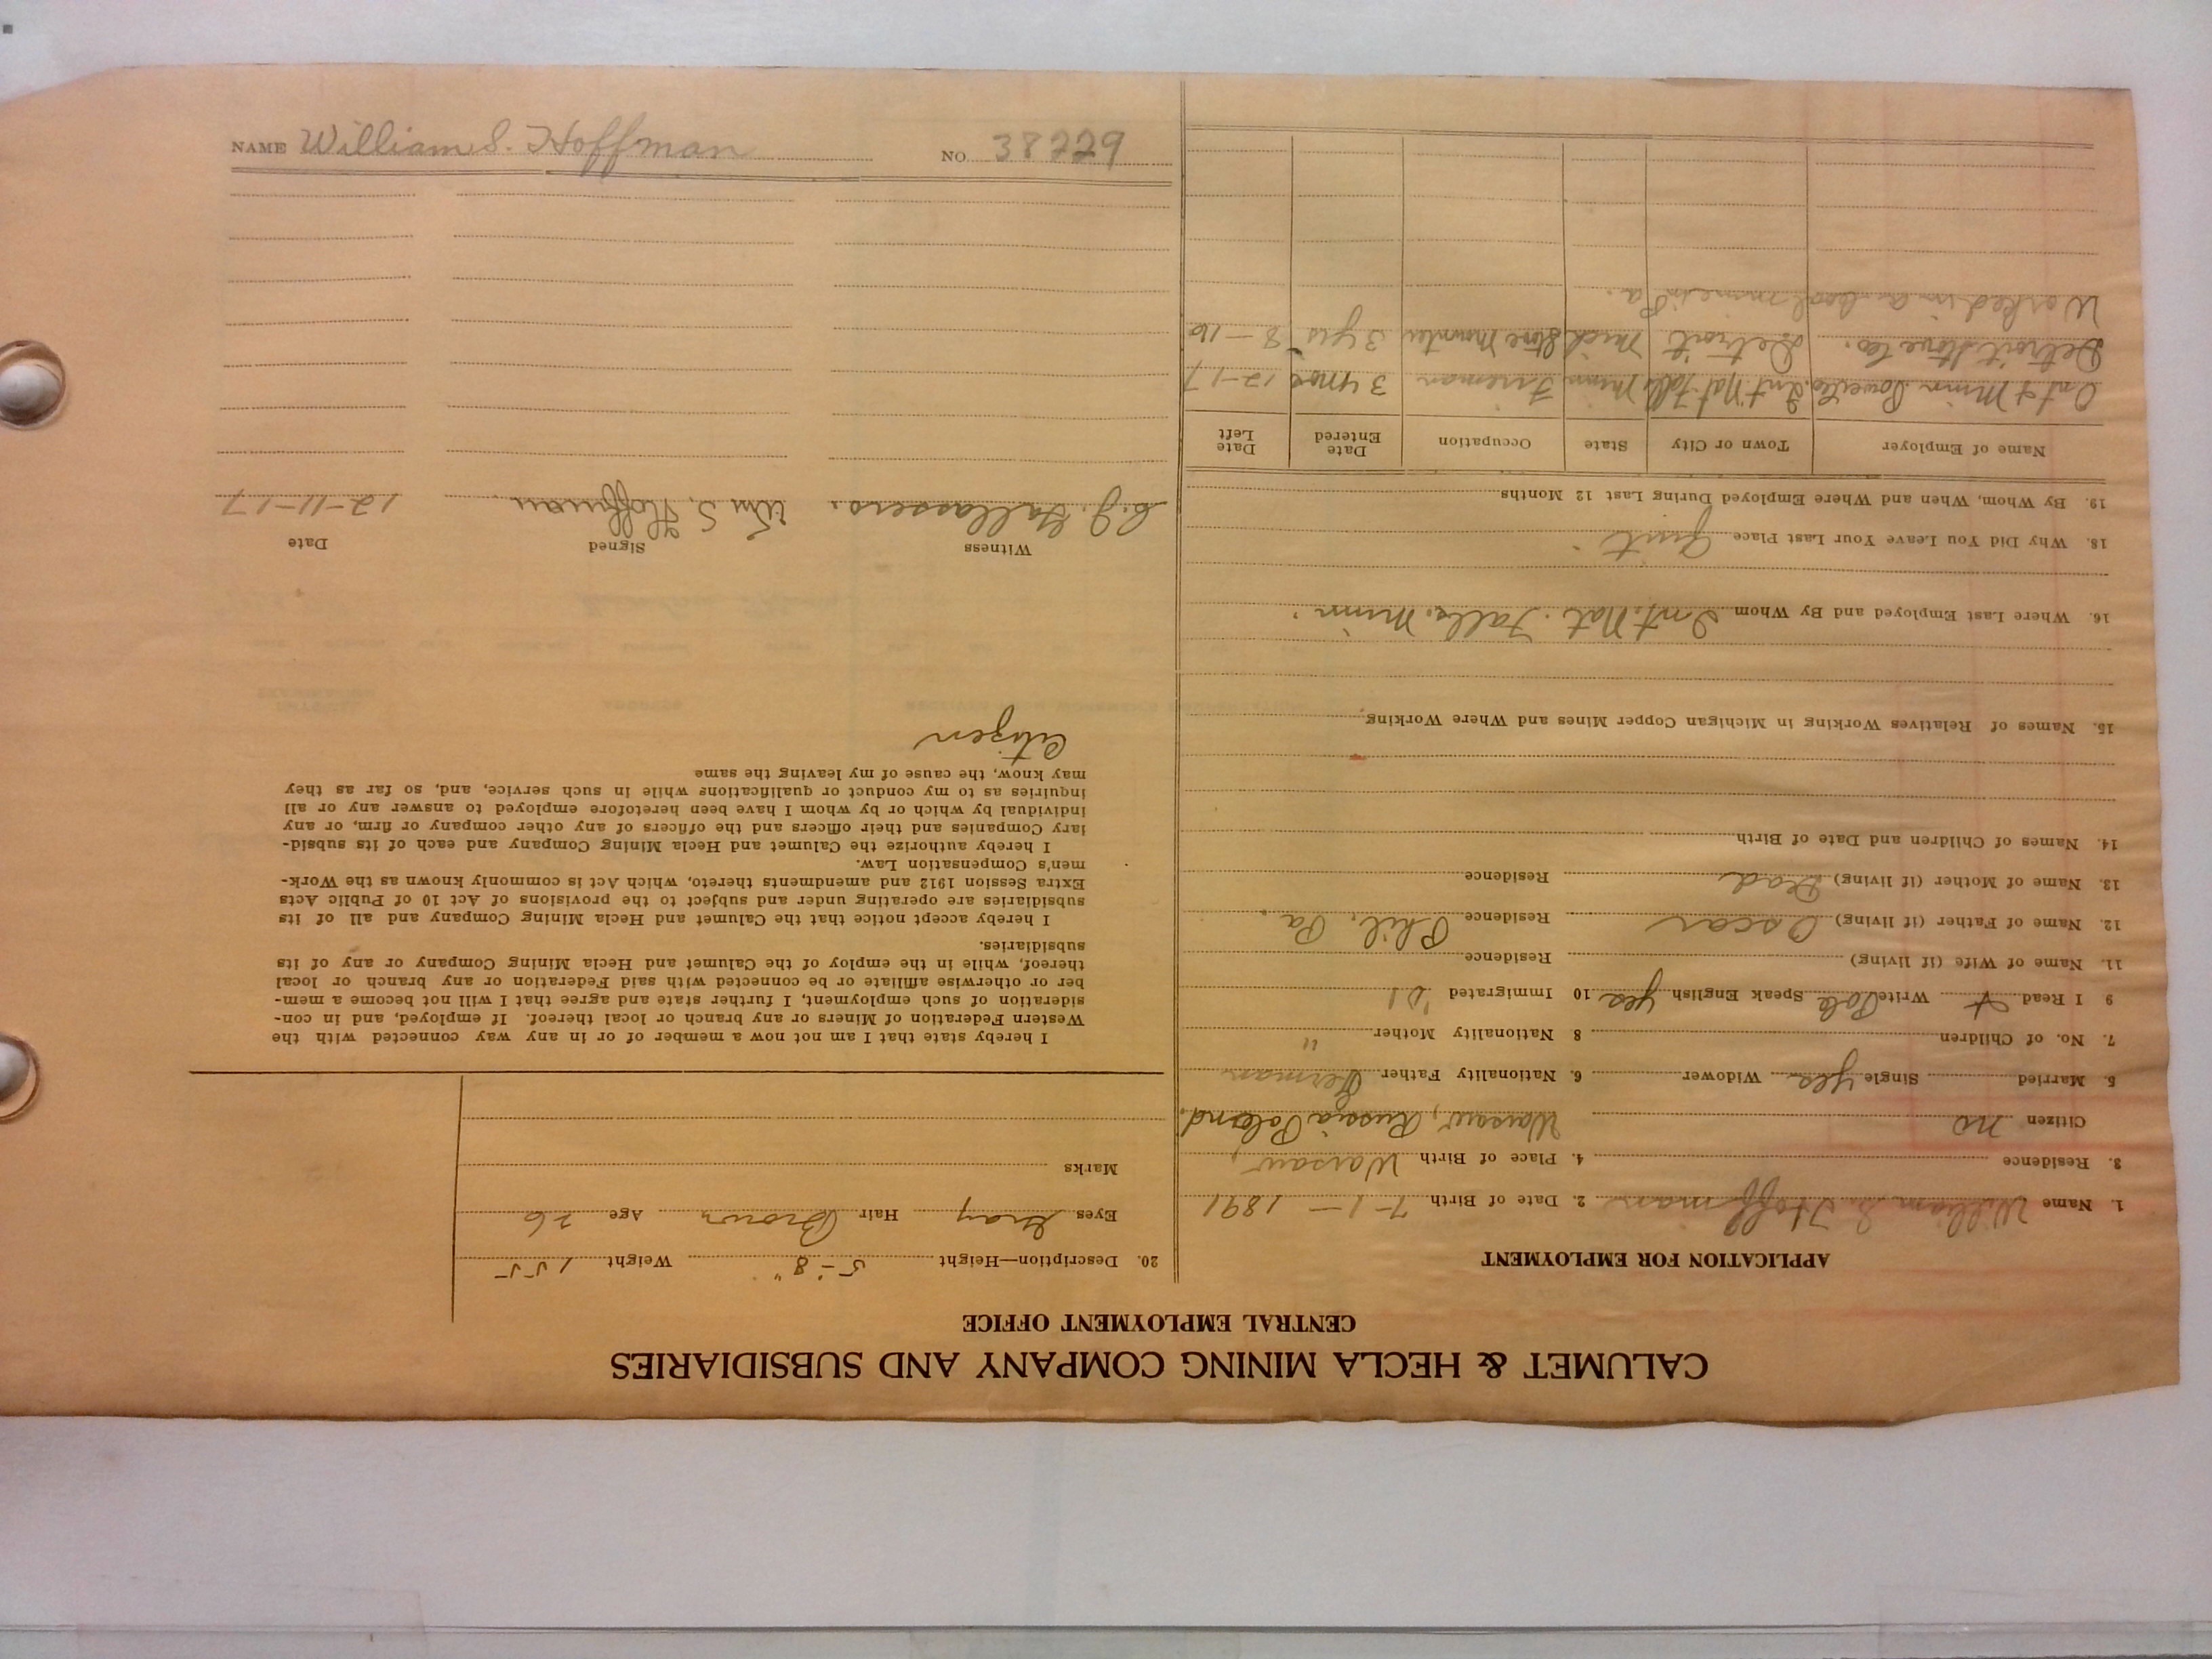 CALUMET & HECLA MINING COMPANY AND SUBSIDIARIES
CENTRAL EMPLOYMENT OFFICE
APPLICATION FOR EMPLOYMENT
1. Name William S. Hoffman 2. Date of Birth 7-1-1891
3. Residence 4. Place of Birth Warsaw,
Citizen no Warsaw, Russia Poland.
5. Married Single yes Widower 6. Nationality Father German
7. No. of Children 8 Nationality Mother "
9 I Read + Write Pole Speak English yes 10 Immigrated '01
11. Name of Wife (if living) Residence
12. Name of Father (if living) Oscar Residence Phil. Pa.
13. Name of Mother (if living) Dead Residence
14. Names of Children and Date of Birth
15. Names of Relatives Working in Michigan Copper Mines and Where Working
16. Where Last Employed and By Whom Int. Nat. Falls. Minn.
18. Why Did You Leave Your Last Place Quit.
19. By Whom, When and Where Employed During Last 12 Months
Name of Employer Town or City State Occupation Date Entered Date Left
Ont & Minn Power Co. Int Nat Falls Minn Fireman 3 mos 12-17
Detroit Stove Co. Detroit Mich Stove Mounter 3 yrs 8-16
Worked in a coal mine in Pa.
20. Description—Height 5-'8" Weight 155
Eyes Gray Hair Brown Age 26
Marks
I hereby state that I am not now a member of or in any way connected with the
Western Federation of Miners or any branch or local thereof. If employed, and in con-
sideration of such employment, I further state and agree that I will not become a mem-
ber or otherwise affiliate or be connected with said Federation or any branch or local
thereof, while in the employ of the Calumet and Hecla Mining Company or any of its
subsidiaries.
I hereby accept notice that the Calumet and Hecla Mining Company and all of its
subsidiaries are operating under and subject to the provisions of Act 10 of Public Acts
Extra Session 1912 and amendments thereto, which Act is commonly known as the Work-
men's Compensation Law.
I hereby authorize the Calumet and Hecla Mining Company and each of its subsid-
iary Companies and their officers and the officers of any other company or firm, or any
individual by which or by whom I have been heretofore employed to answer any or all
inquiries as to my conduct or qualifications while in such service, and, so far as they
may know, the cause of my leaving the same
Citizen
Witness Signed Date
Wm S. Hoffman. 12-11-17
NAME William S. Hoffman NO. 38229